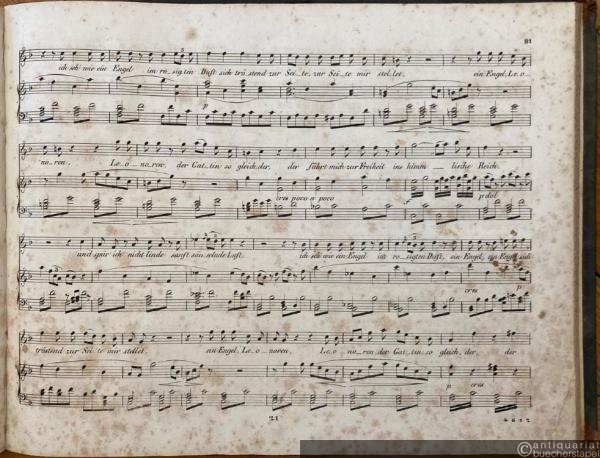 81
ich seh' wie ein Engel im ro_sigten Duft sich trö_stend zur Sei_te, zur Sei_te mir stel_let, ein Engel, Le_o_
p
no_ren, Le_o_noren, der Gat_tin so gleich, der, der führt mich zur Freiheit ins himm_lische Reich
cres poco a poco
p dol
und spür ich nicht linde sanft säu_selnde Luft, ich seh wie ein Engel im ro_sigten Duft, ein Engel, ein Engel sich
cres p
tröstend zur Sei_te mir stellet, ein Engel, Le_o_noren, Le_o_no_ren der Gat_tin so gleich, der, der
p cres
21
antiquariat
buecherstapel